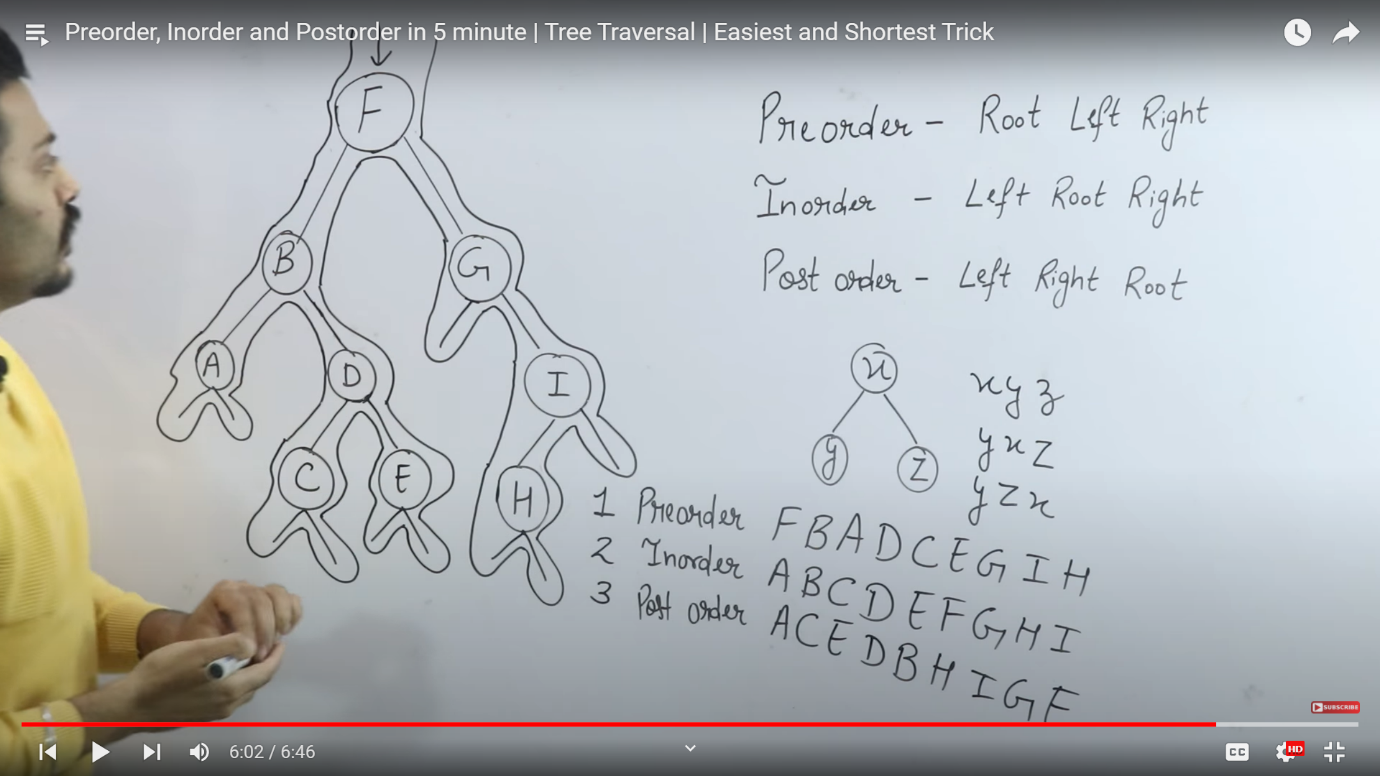 Preorder, Inorder and Postorder in 5 minute | Tree Traversal | Easiest and Shortest Trick
F
Preorder - Root Left Right
Inorder - Left Root Right
Post order - Left Right Root
B G
A D I
C E H
x
y z
x y z
y x z
y z x
1 Preorder F B A D C E G I H
2 Inorder A B C D E F G H I
3 Post order A C E D B H I G F
SUBSCRIBE
6:02 / 6:46
CC
HD